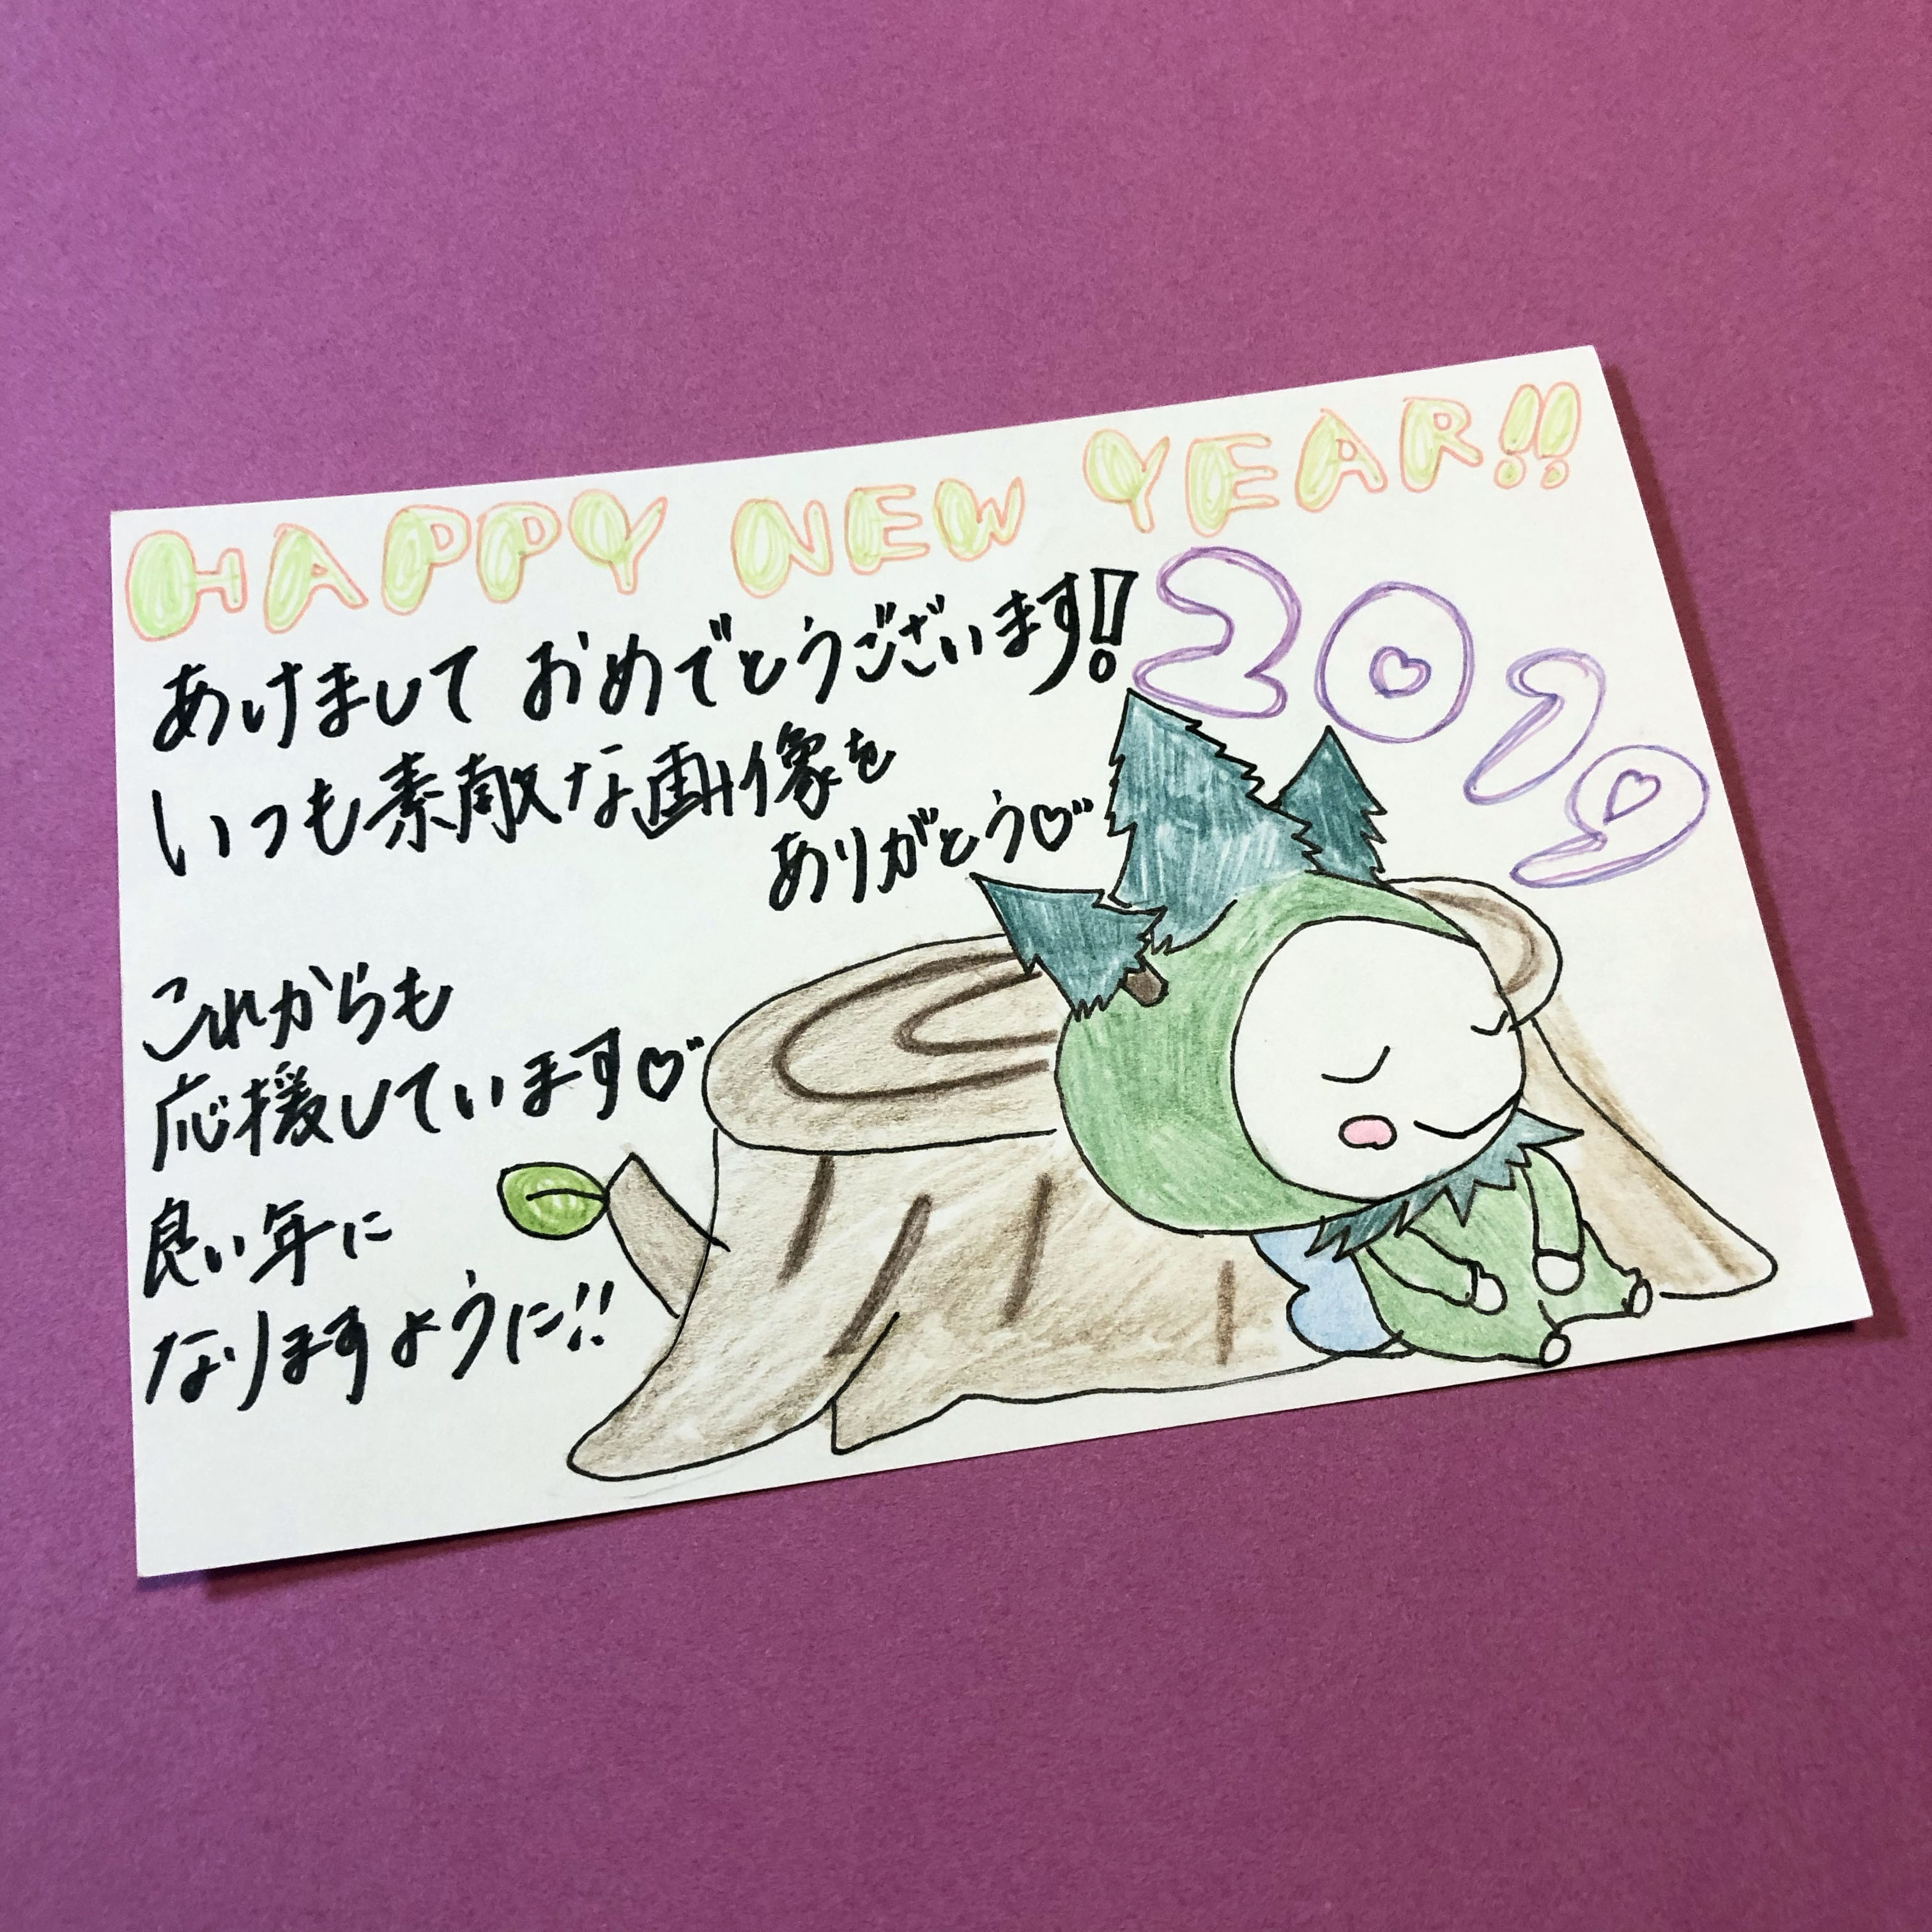 HAPPY NEW YEAR!!
2019
あけまして おめでとうございます!
いつも素敵な画像を
ありがとう♡
これからも
応援しています♡
良い年に
なりますように!!